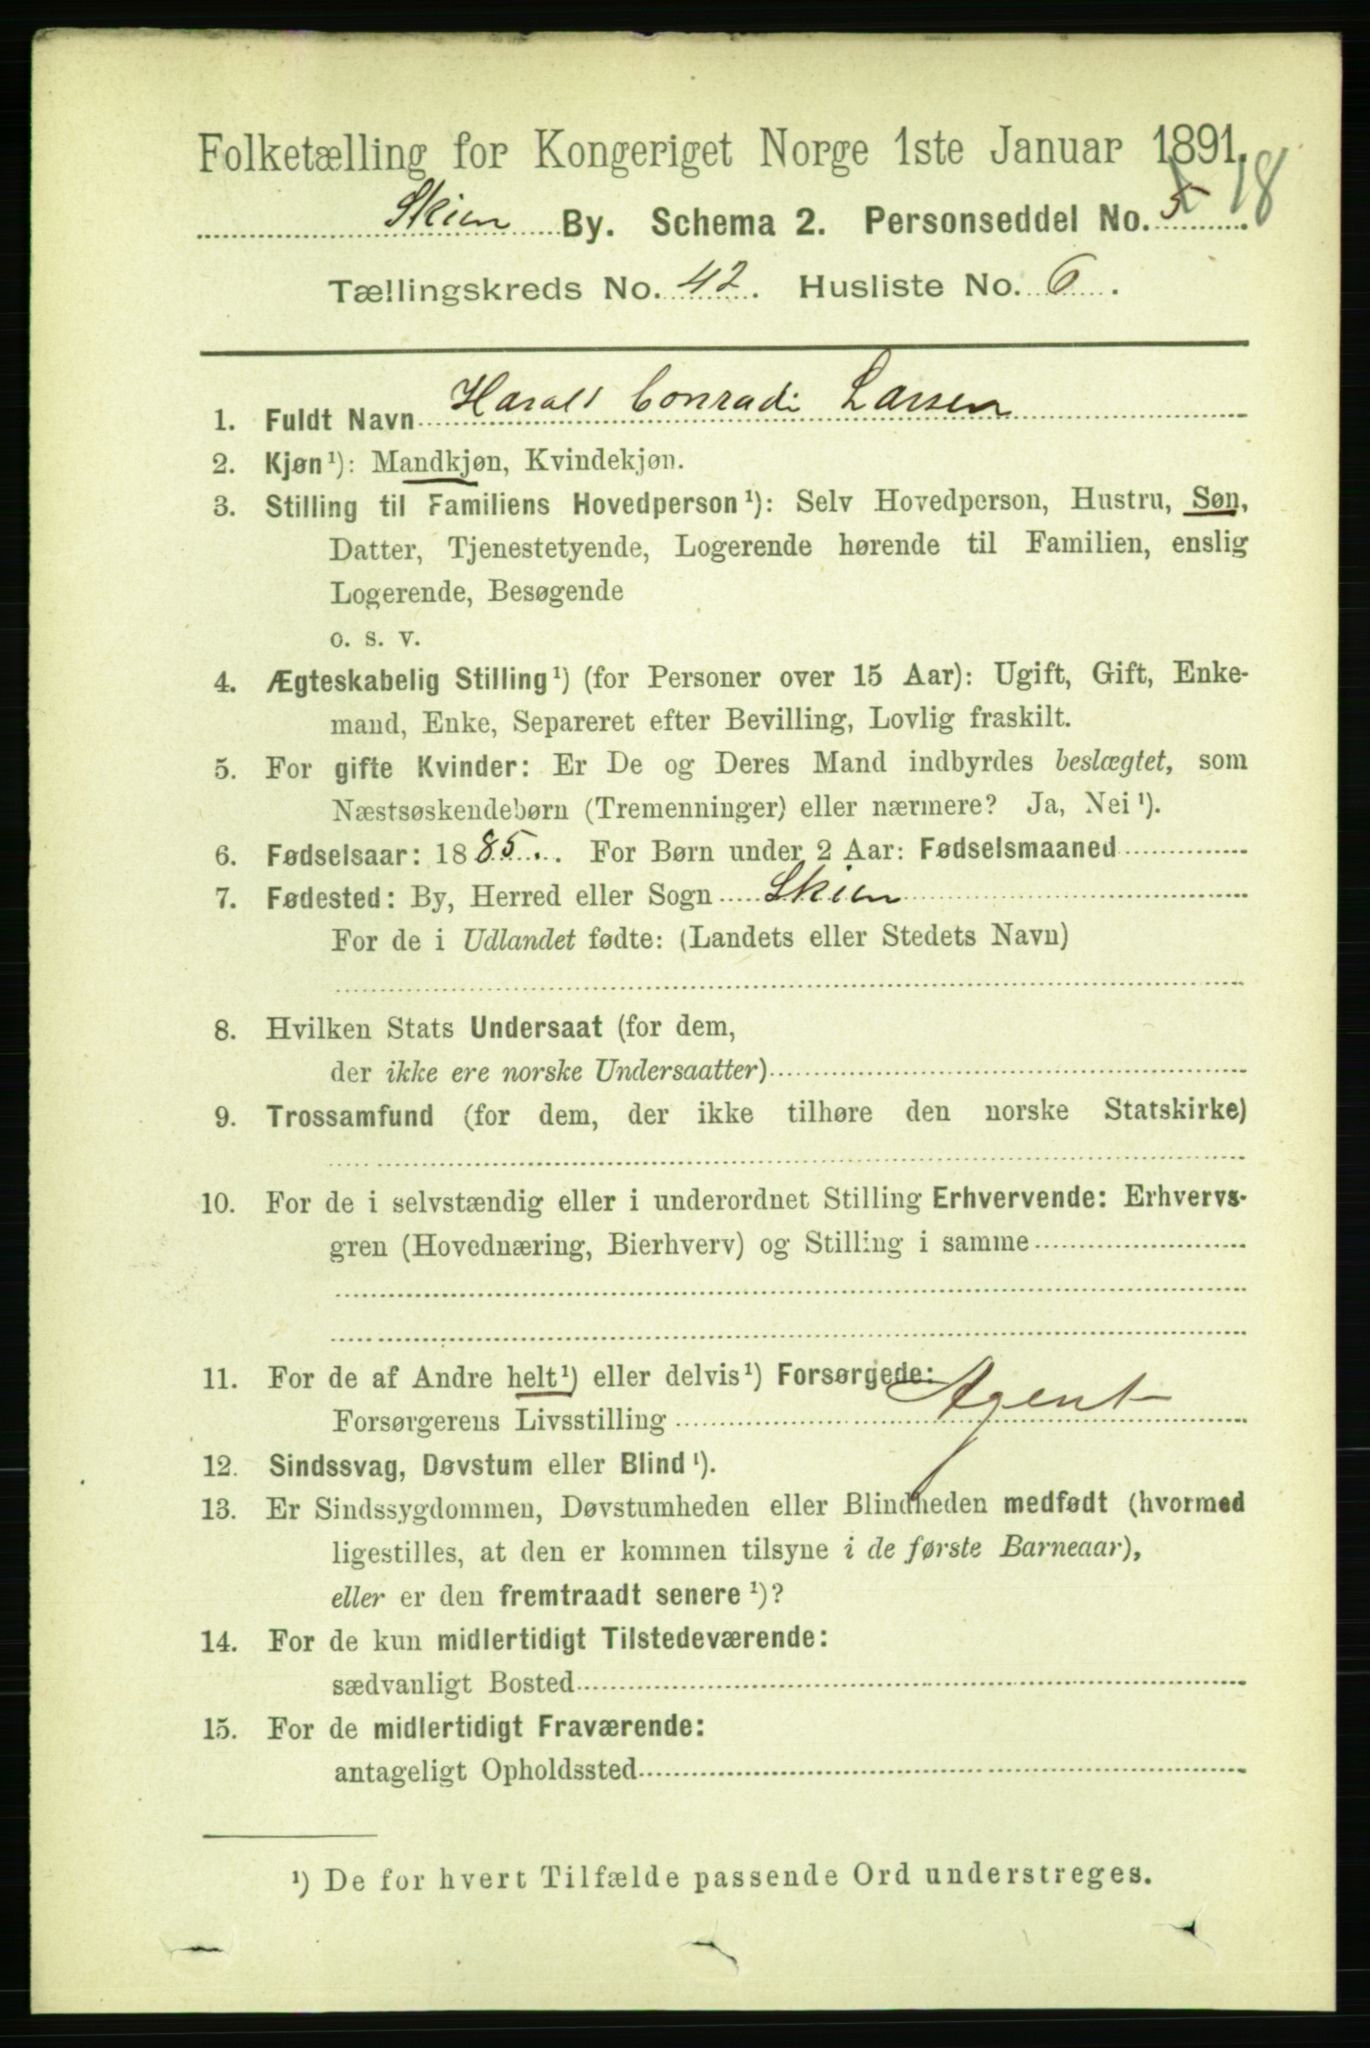 Folketælling for Kongeriget Norge 1ste Januar 1891.
Skien By. Schema 2. Personseddel No. 5 18
Tællingskreds No. 42. Husliste No. 6.
1. Fuldt Navn Harald Conradi Larsen
2. Kjøn¹): Mandkjøn, Kvindekjøn.
3. Stilling til Familiens Hovedperson¹): Selv Hovedperson, Hustru, Søn,
Datter, Tjenestetyende, Logerende hørende til Familien, enslig
Logerende, Besøgende
o. s. v.
4. Ægteskabelig Stilling¹) (for Personer over 15 Aar): Ugift, Gift, Enke-
mand, Enke, Separeret efter Bevilling, Lovlig fraskilt.
5. For gifte Kvinder: Er De og Deres Mand indbyrdes beslægtet, som
Næstsøskendebørn (Tremenninger) eller nærmere? Ja, Nei¹).
6. Fødselsaar: 1885. For Børn under 2 Aar: Fødselsmaaned
7. Fødested: By, Herred eller Sogn Skien
For de i Udlandet fødte: (Landets eller Stedets Navn)
8. Hvilken Stats Undersaat (for dem,
der ikke ere norske Undersaatter)
9. Trossamfund (for dem, der ikke tilhøre den norske Statskirke)
10. For de i selvstændig eller i underordnet Stilling Erhvervende: Erhvervs-
gren (Hovednæring, Bierhverv) og Stilling i samme
11. For de af Andre helt¹) eller delvis¹) Forsørgede:
Forsørgerens Livsstilling Agent
12. Sindssvag, Døvstum eller Blind¹).
13. Er Sindssygdommen, Døvstumheden eller Blindheden medfødt (hvormed
ligestilles, at den er kommen tilsyne i de første Barneaar),
eller er den fremtraadt senere¹)?
14. For de kun midlertidigt Tilstedeværende:
sædvanligt Bosted
15. For de midlertidigt Fraværende:
antageligt Opholdssted
¹) De for hvert Tilfælde passende Ord understreges.